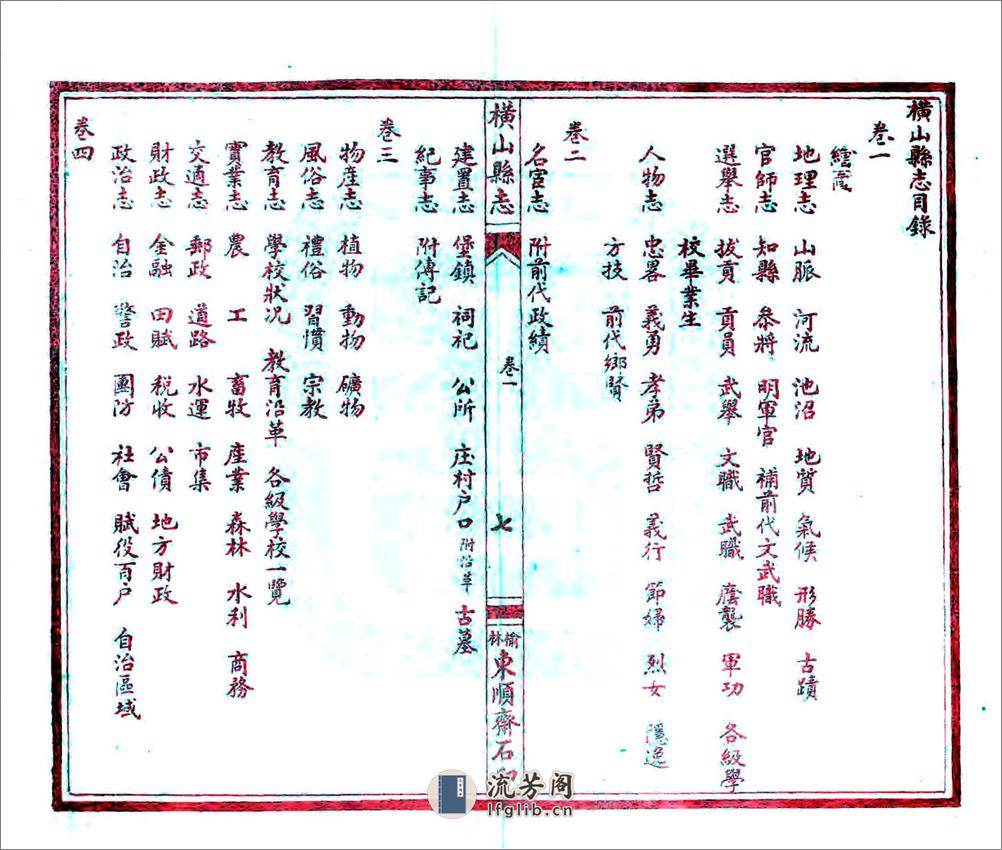 橫山縣志目錄
卷一
繪畫
地理志 山脈 河流 池沼 地質 氣候 形勝 古蹟
官師志 知縣 叅將 明軍官 補前代文武職
選舉志 拔貢 貢員 武舉 文職 武職 廕襲 軍功 各級學
校畢業生
人物志 忠畧 義勇 孝弟 賢哲 義行 節婦 烈女 隱逸
方技 前代鄉賢
卷二
名宦志 附前代政績
橫山縣志
卷一
七
榆林
東順齋石印
建置志 堡鎮 祠祀 公所 庄村户口 附沿革 古墓
紀事志 附傳記
卷三
物産志 植物 動物 礦物
風俗志 禮俗 習慣 宗教
教育志 學校狀况 教育沿革 各級學校一覽
實業志 農 工 畜牧 産業 森林 水利 商務
交通志 郵政 道路 水運 市集
財政志 金融 田賦 税收 公債 地方財政
政治志 自治 警政 團防 社會 賦役百户 自治區域
卷四
流芳阁
lfglib.cn